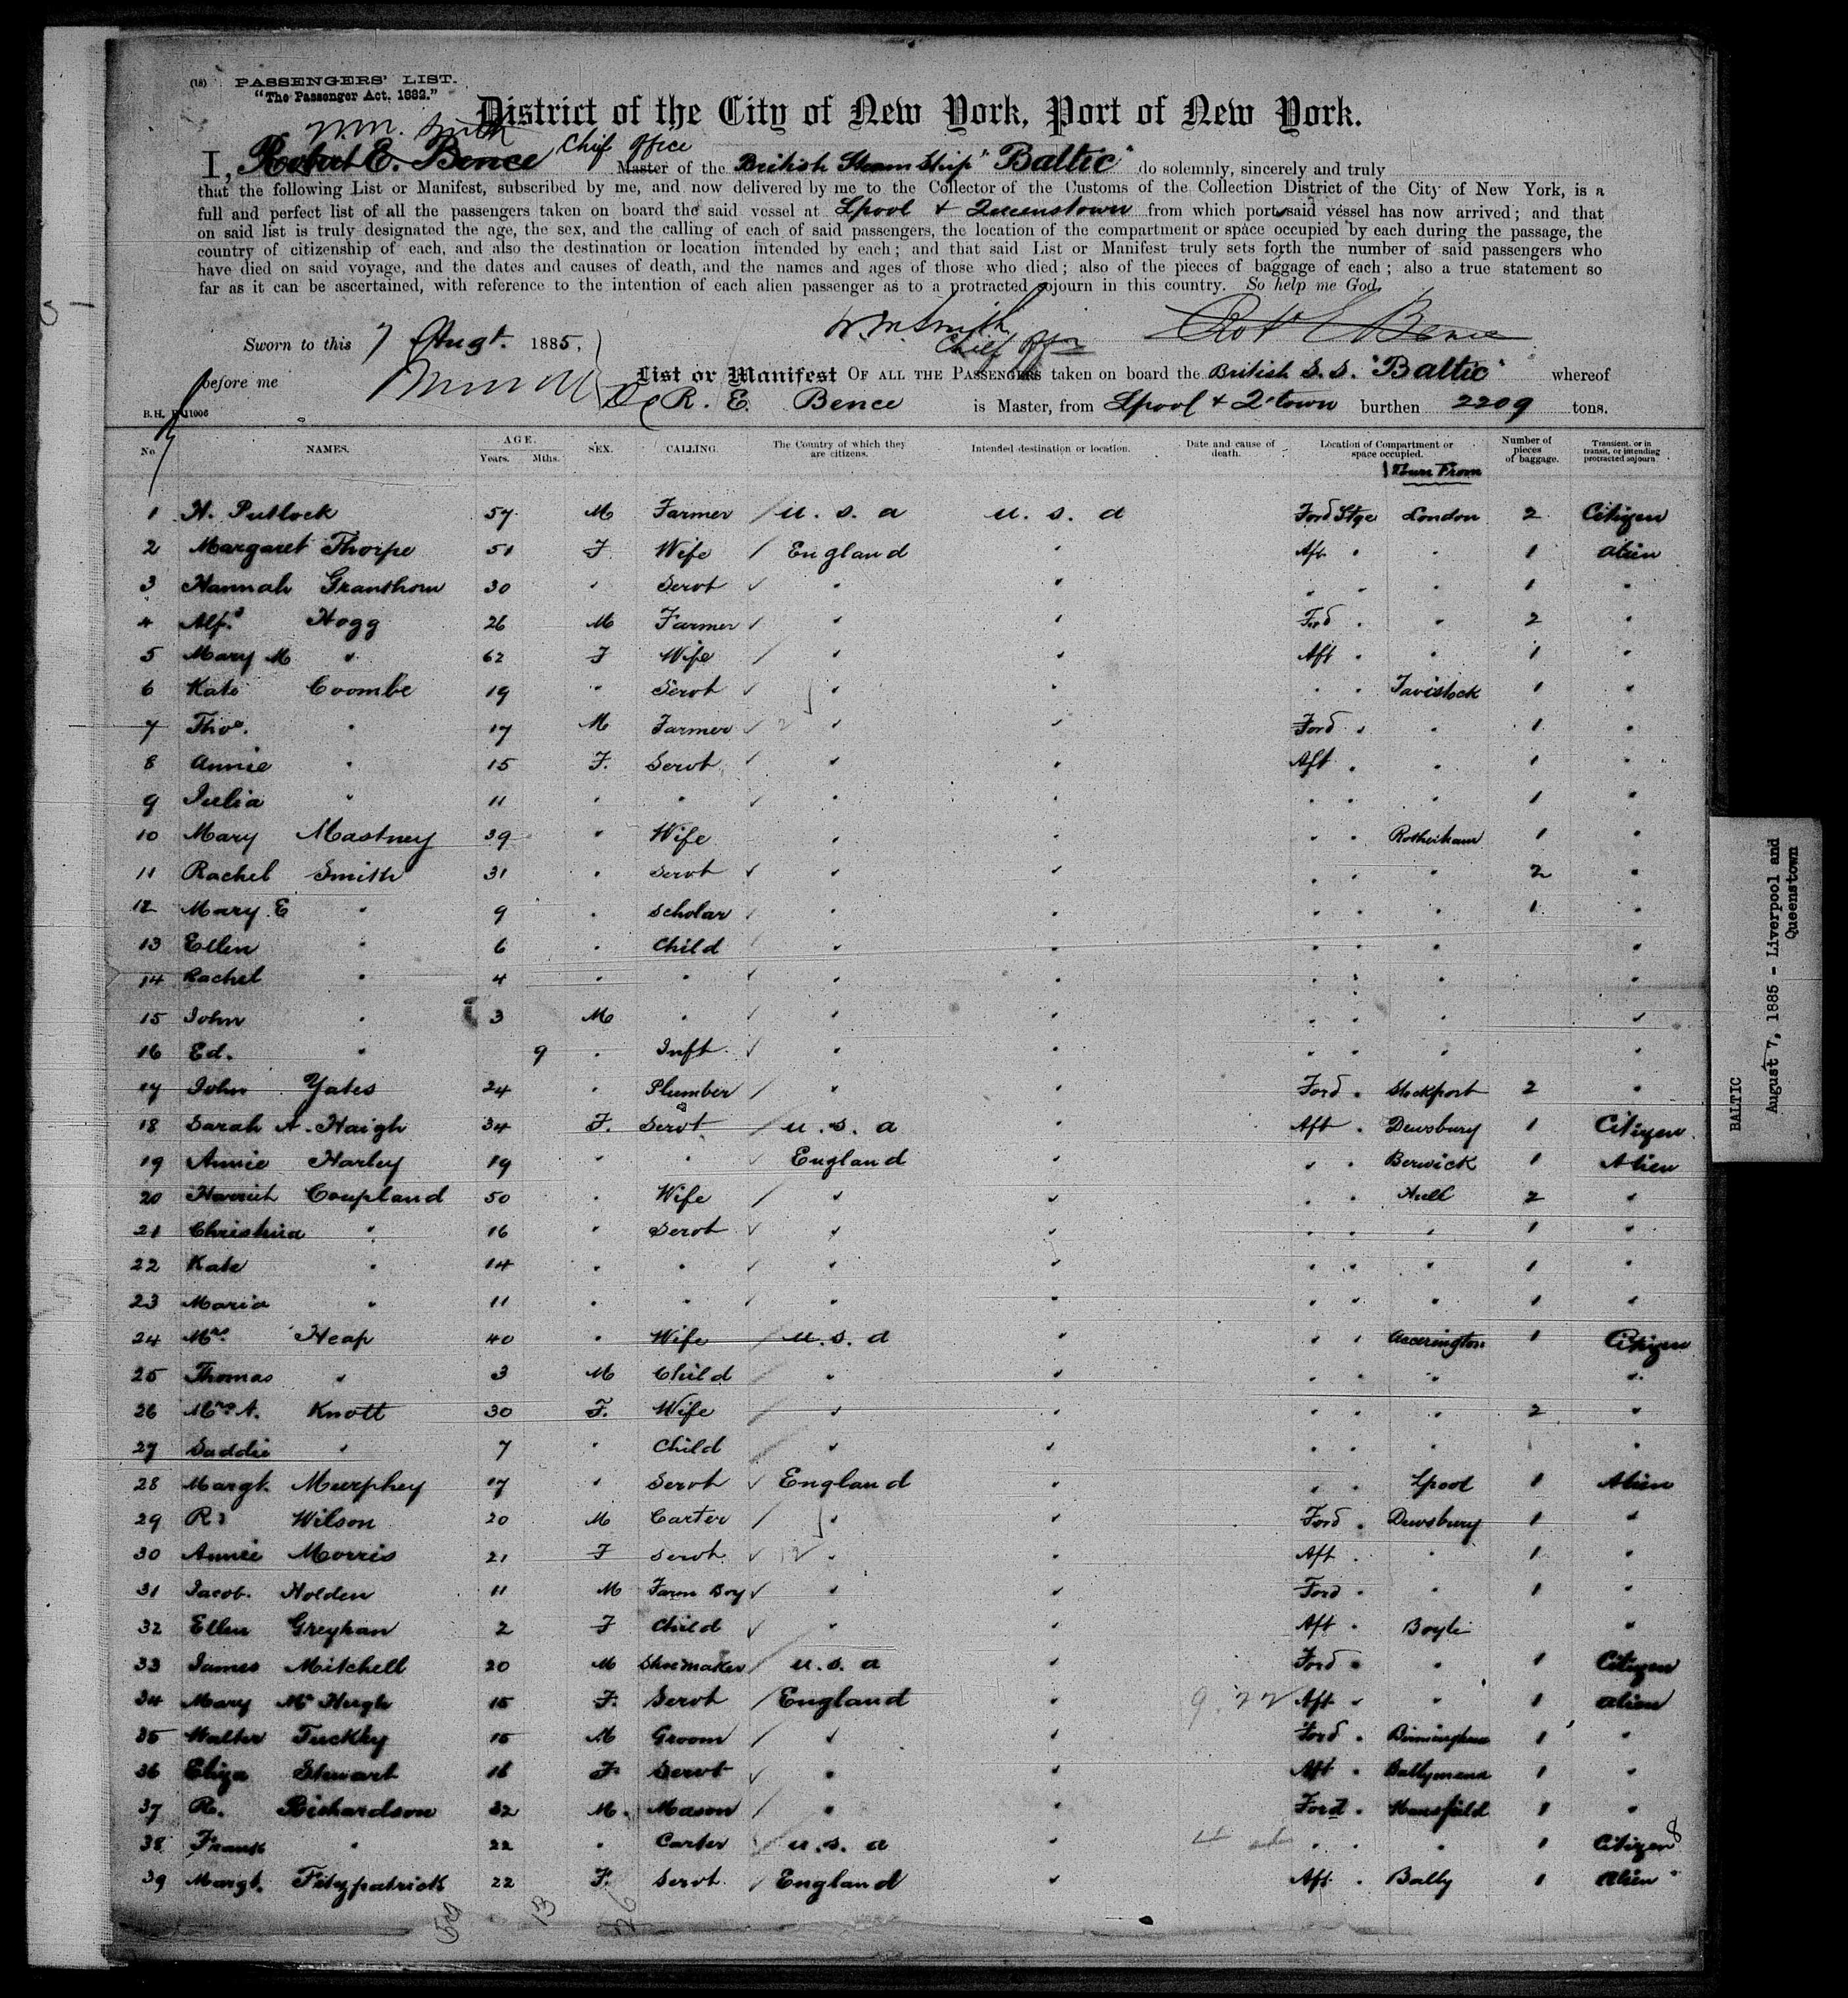 (18) PASSENGERS' LIST.
"The Passenger Act, 1882."
District of the City of New York, Port of New York.
W.M. Smith Chief Office
I, Robert E. Bence Master of the British Steam Ship "Baltic" do solemnly, sincerely and truly
that the following List or Manifest, subscribed by me, and now delivered by me to the Collector of the Customs of the Collection District of the City of New York, is a
full and perfect list of all the passengers taken on board the said vessel at Lpool + Queenstown from which port said vessel has now arrived; and that
on said list is truly designated the age, the sex, and the calling of each of said passengers, the location of the compartment or space occupied by each during the passage, the
country of citizenship of each, and also the destination or location intended by each; and that said List or Manifest truly sets forth the number of said passengers who
have died on said voyage, and the dates and causes of death, and the names and ages of those who died; also of the pieces of baggage of each; also a true statement so
far as it can be ascertained, with reference to the intention of each alien passenger as to a protracted sojourn in this country. So help me God.
W.M. Smith Robt E Bence
Sworn to this 7 Augt. 1885, Chief Offr
before me List or Manifest OF ALL THE PASSENGERS taken on board the British S.S. "Baltic" whereof
R. E. Bence is Master, from Lpool + Q'town burthen 2209 tons.
No NAMES. AGE. Years. Mths. SEX. CALLING. The Country of which they are citizens. Intended destination or location. Date and cause of death. Location of Compartment or space occupied. Number of pieces of baggage. Transient, or in transit, or intending protracted sojourn
From
1 H. Putlock 57 M Farmer U.S.A U.S.A Ford Stge London 2 Citizen
2 Margaret Thorpe 51 F Wife England " Aft " " 1 Alien
3 Hannah Granthom 30 " Servt " " " " " 1 "
4 Alfd Hogg 26 M Farmer " " Ford " " 2 "
5 Mary M " 62 F Wife " " Aft " " 1 "
6 Kate Coombe 19 " Servt " " " " Tavistock 1 "
7 Thos. " 17 M Farmer " " Ford " " 1 "
8 Annie " 15 F. Servt " " Aft " " 1 "
9 Julia " 11 " " " " " " " 1 "
10 Mary Mastney 39 " Wife " " " " Rotherham 1 "
11 Rachel Smith 31 " Servt " " " " " 2 "
12 Mary E " 9 " Scholar " " " " " 1 "
13 Ellen " 6 " Child " " " " " "
14 Rachel " 4 " " " " " " "
15 John " 3 M " " " " " " "
16 Ed. " 9 " Inft. " " " " " "
17 John Yates 24 " Plumber " " Ford " Stockport 2 "
18 Sarah A. Haigh 34 F. Servt U.S.A " Aft " Dewsbury 1 Citizen
19 Annie Harley 19 " " England " " Berwick 1 Alien
20 Harriet Coupland 50 " Wife " " " " Hull 2 "
21 Christina " 16 " Servt " " " " " 1 "
22 Kate " 14 " " " " " " " 1 "
23 Maria " 11 " " " " " " " 1 "
24 Mrs. Heap 40 " Wife U.S.A " " " Accrington 1 Citizen
25 Thomas " 3 M Child " " " " " "
26 Mrs A. Knott 30 F. Wife " " " " " 2 "
27 Saddie " 7 " Child " " " " " "
28 Margt. Murphey 17 " Servt England " " " Lpool 1 Alien
29 R. Wilson 20 M Carter " " Ford " Dewsbury 1 "
30 Annie Morris 21 F Servt " " Aft " " 1 "
31 Jacob. Holden 11 M Farm Boy " " Ford " " 1 "
32 Ellen Greyhan 2 F Child " " Aft " Boyle "
33 James Mitchell 20 M Shoemaker U.S.A " Ford " " 1 Citizen
34 Mary McHugh 15 F. Servt England " Aft " " 1 Alien
35 Walter Tuckky 15 M Groom " " Ford " Birmingham 1 "
36 Eliza Stewart 16 F Servt " " Aft " Ballymena 1 "
37 R. Richardson 32 M. Mason " " Ford " Mansfield 1 "
38 Frank " 22 " Carter U.S.A " " " " 1 Citizen
39 Margt. Fitzpatrick 22 F. Servt England " Aft " Bally 1 Alien
13 26
BALTIC
August 7, 1885 - Liverpool and
Queenstown